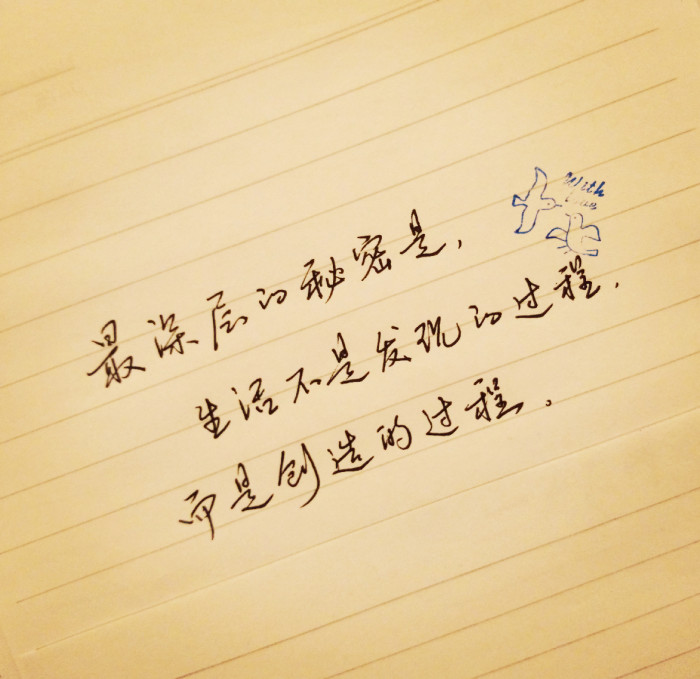 With
You
最深层的秘密是,
生活不是发现的过程,
而是创造的过程.